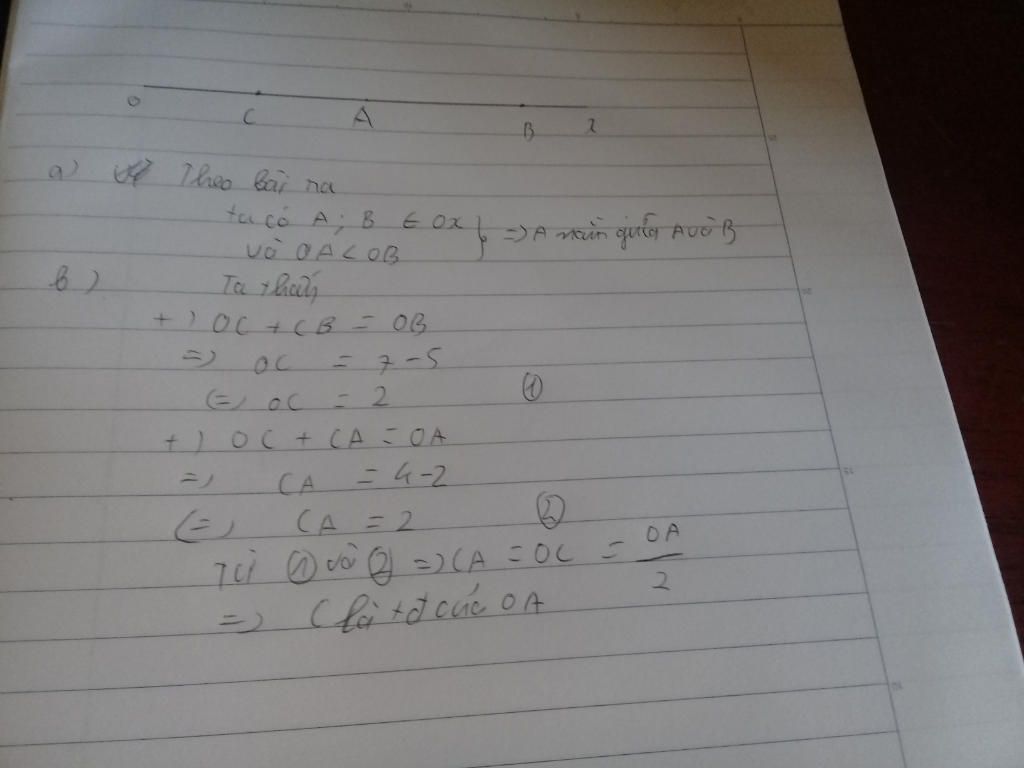 O C A B x
a) Theo bài ra
ta có A; B ∈ Ox } => A nằm giữa A và B
và OA < OB
b) Ta thấy
+) OC + CB = OB
=> OC = 7 - 5
<=> OC = 2 ①
+) OC + CA = OA
=> CA = 4 - 2
<=> CA = 2 ②
Từ ① và ② => CA = OC = OA/2
=> C là tđ của OA